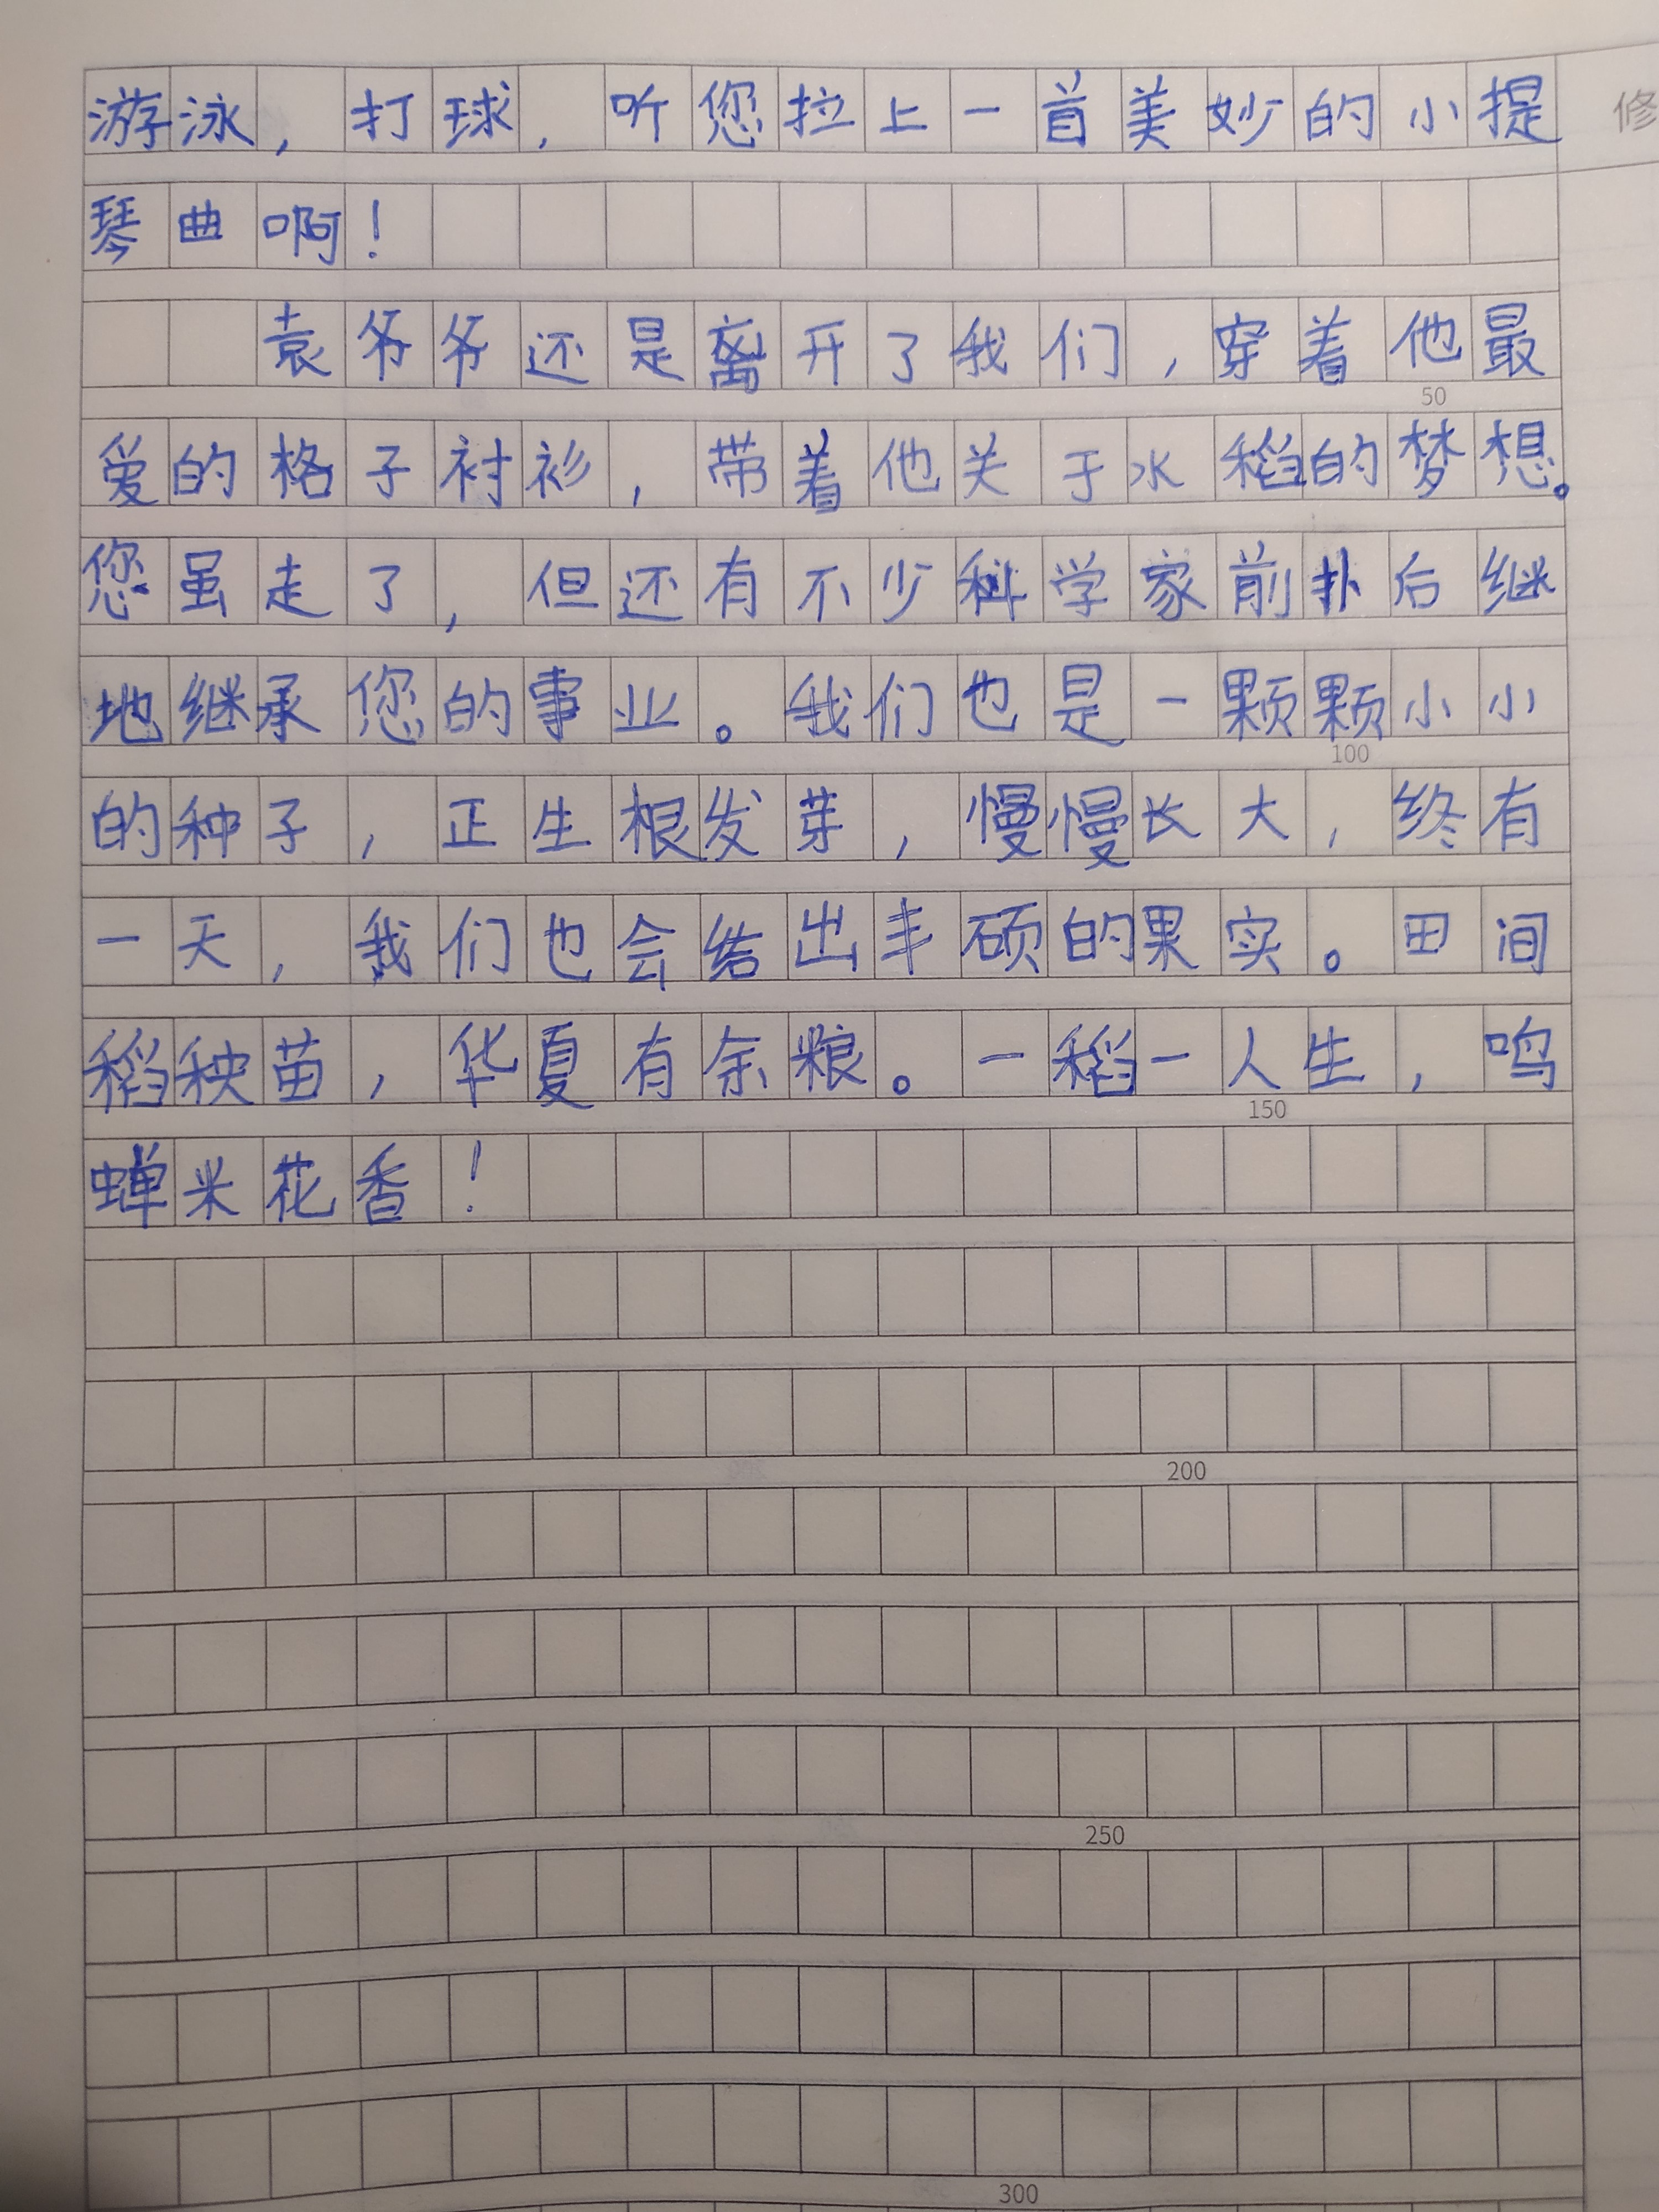 游泳，打球，听您拉上一首美妙的小提
修
琴曲啊！
袁爷爷还是离开了我们，穿着他最
50
爱的格子衬衫，带着他关于水稻的梦想。
您虽走了，但还有不少科学家前扑后继
地继承您的事业。我们也是一颗颗小小
100
的种子，正生根发芽，慢慢长大，终有
一天，我们也会结出丰硕的果实。田间
稻秧苗，华夏有余粮。一稻一人生，鸣
150
蝉米花香！
200
250
300